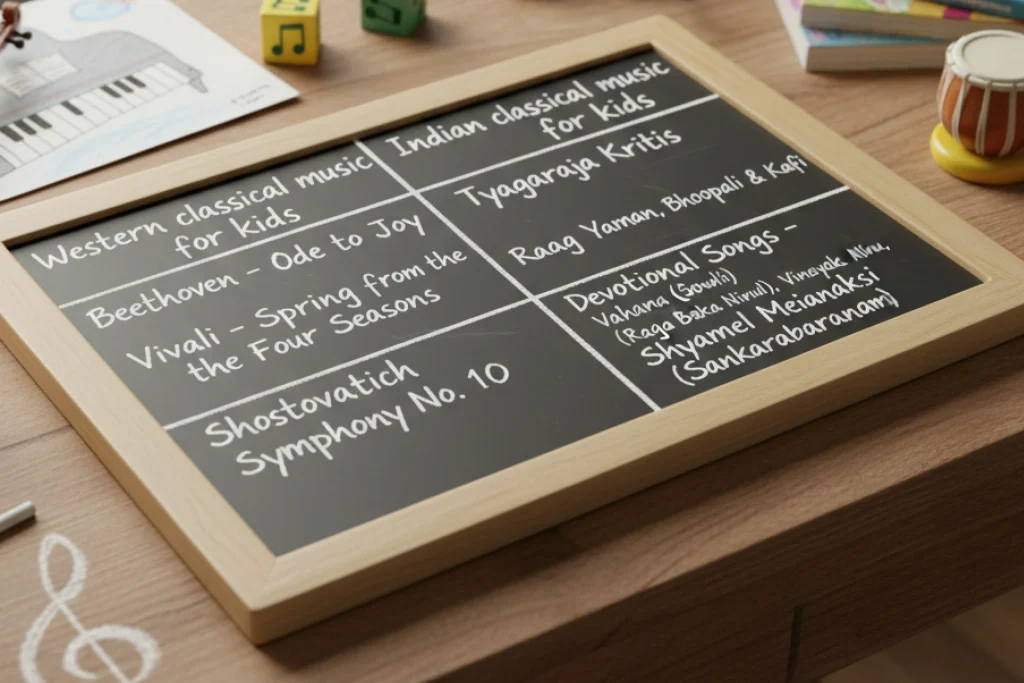 Western classical music
for kids
Indian classical music
for kids
Beethoven - Ode to Joy
Vivali - Spring from the
the Four Seasons
Tyagaraja Kritis
Raag Yaman, Bhoopali & Kafi
Shostovatich
Symphony No. 10
Devotional Songs -
Vahana
(Raga Vinayak
Shyamel Meianaksi
(Sankarabaranam)